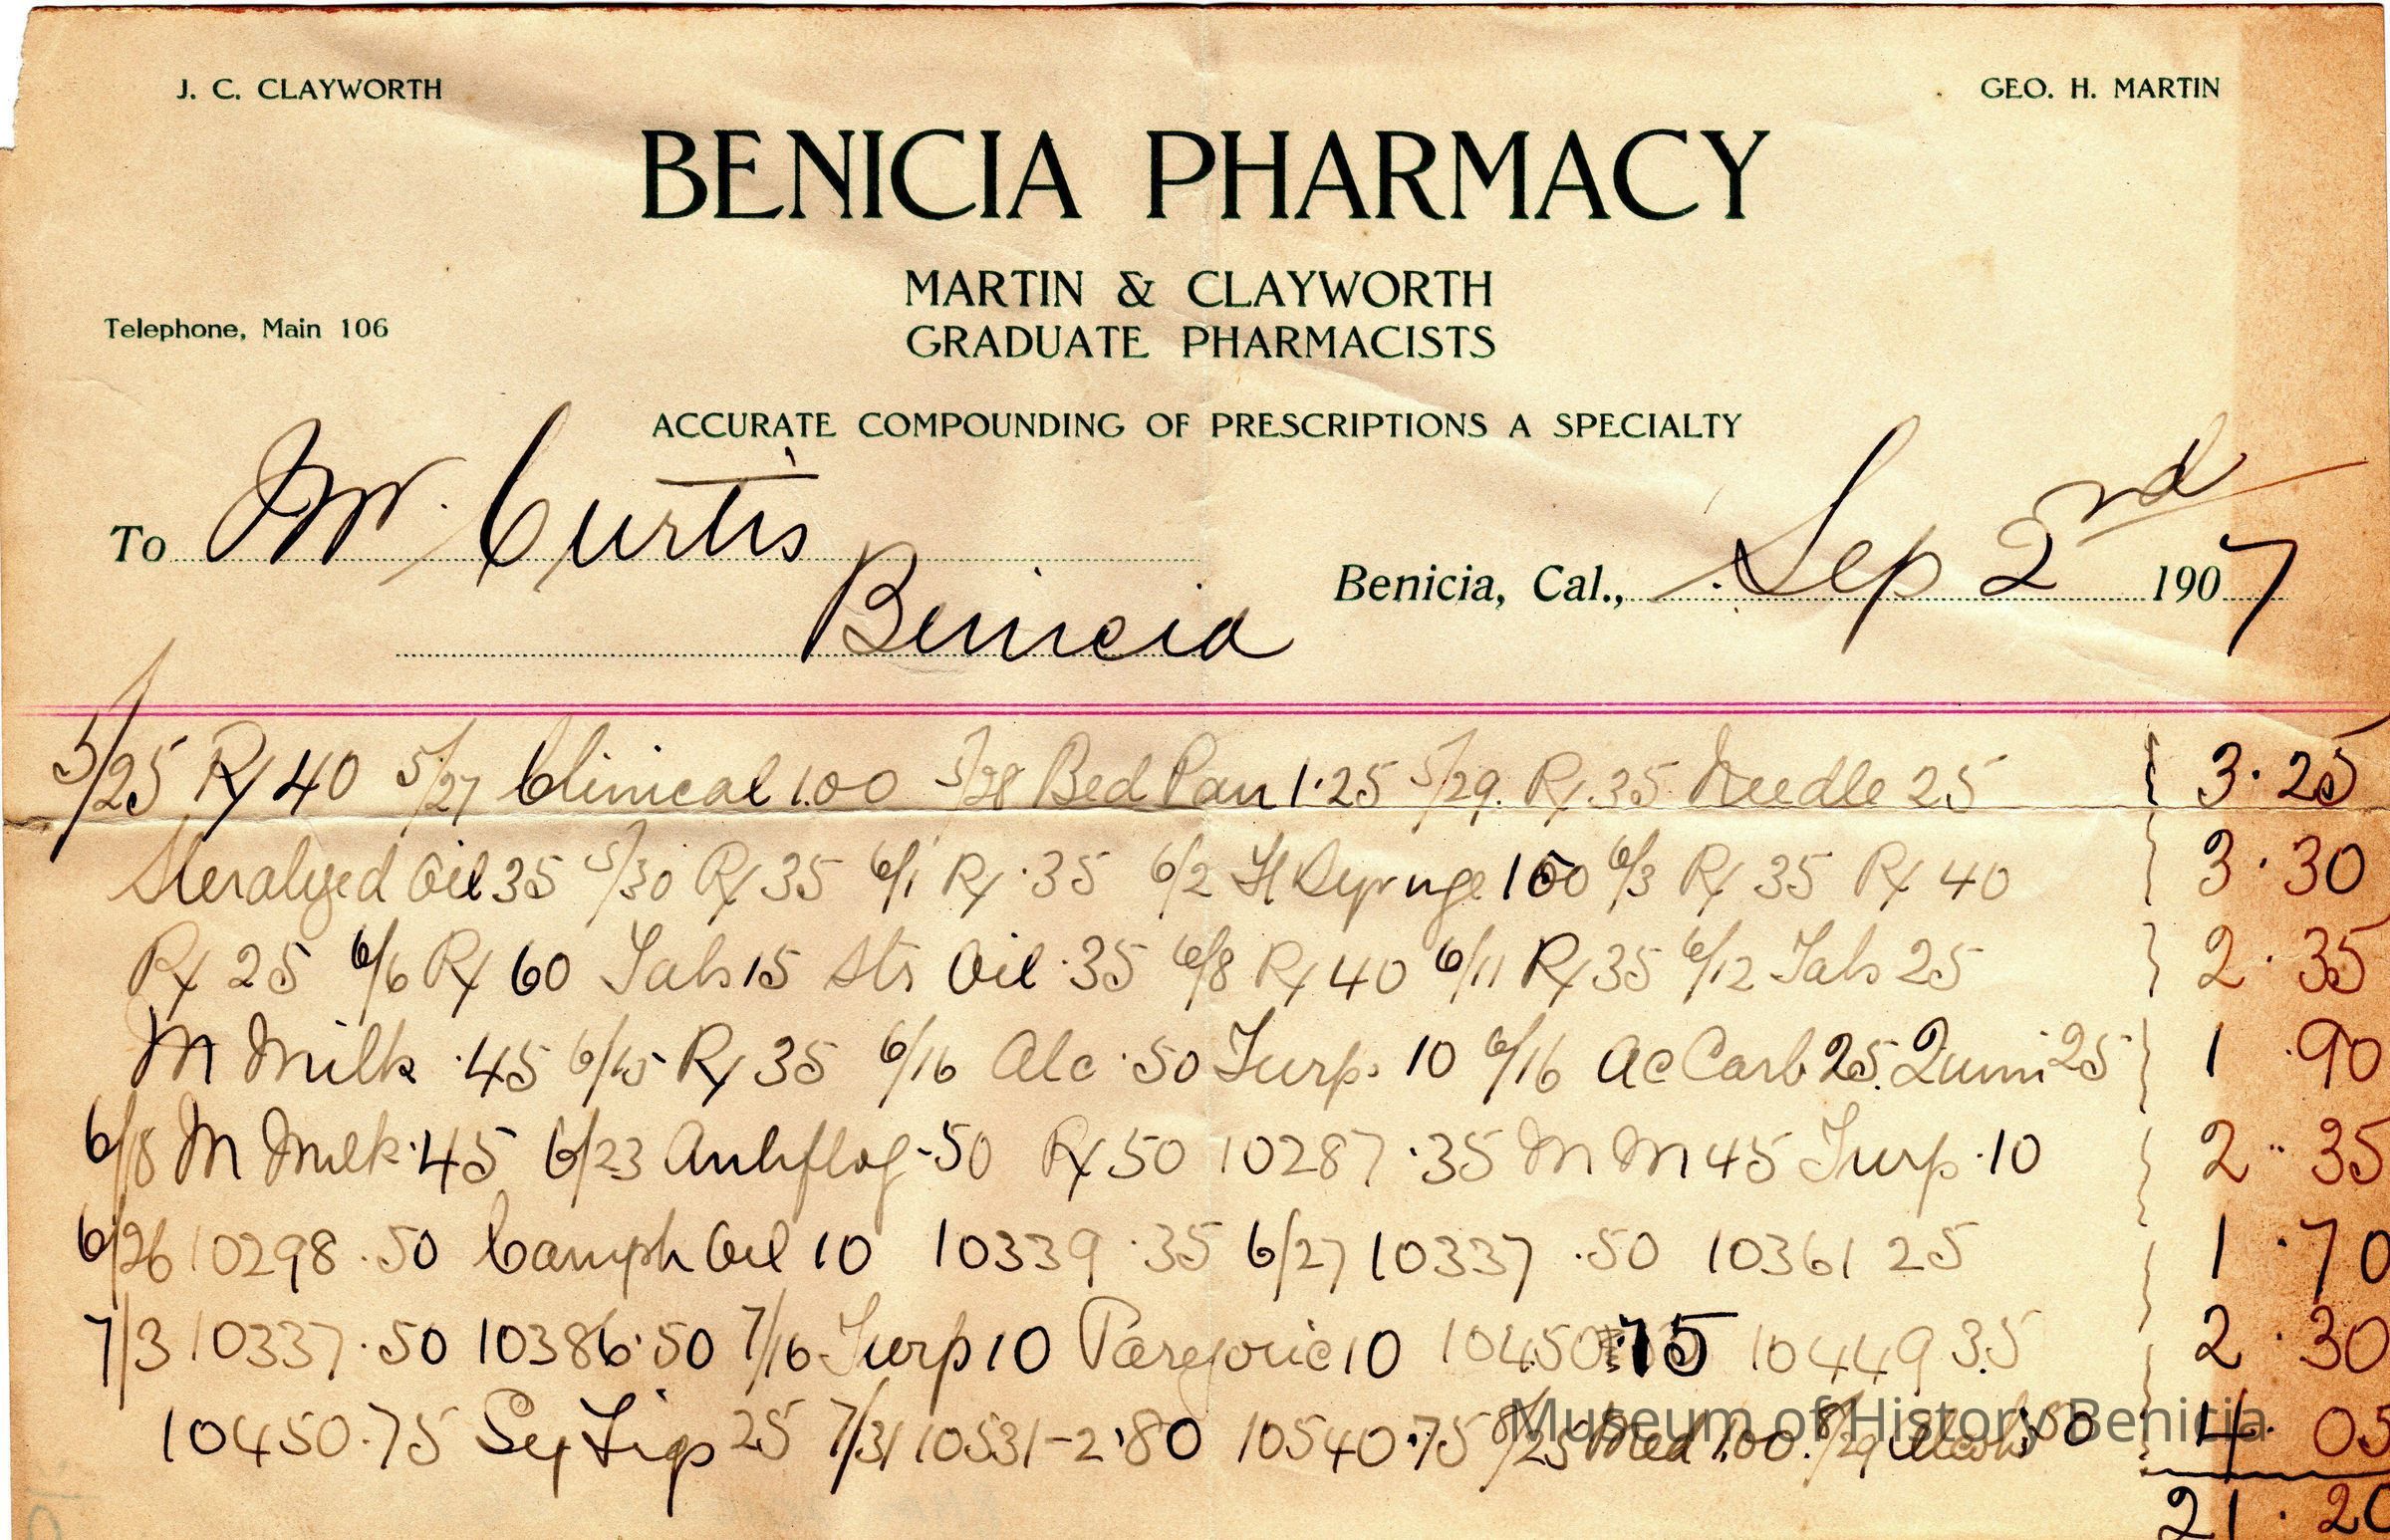 J. C. CLAYWORTH GEO. H. MARTIN
BENICIA PHARMACY
MARTIN & CLAYWORTH
Telephone, Main 106
GRADUATE PHARMACISTS
ACCURATE COMPOUNDING OF PRESCRIPTIONS A SPECIALTY
To Mr. Curtis
Benicia, Cal., Sep 2nd 1907
Benicia
5/25 Rx 40 5/27 Clinical 1.00 5/28 Bed Pan 1.25 5/29 Rx 35 Needle 25 } 3.25
Steralyzed Oil 35 5/30 Rx 35 6/1 Rx .35 6/2 H Syringe 150 6/3 Rx 35 Rx 40 } 3.30
Rx 25 6/6 Rx 60 Tabs 15 Ats Oil .35 6/8 Rx 40 6/11 Rx 35 6/12 Tabs 25 } 2.35
M Milk .45 6/15 Rx 35 6/16 Alc .50 Turp. 10 6/16 Ac Carb 25. Quini 25 } 1.90
6/18 M Milk .45 6/23 Antiflog .50 Rx 50 10287 .35 M M 45 Turp .10 } 2.35
6/26 10298 .50 Camph Oil 10 10339 .35 6/27 10337 .50 10361 25 } 1.70
7/3 10337 .50 10386 .50 7/16 Turp 10 Paregoric 10 10450 .75 10449 35 } 2.30
10450 .75 Sy Figs 25 7/31 10531-2 .80 10540 .75 8/25 Med 1.00 8/29 50 } 4.05
21.20
Museum of History Benicia